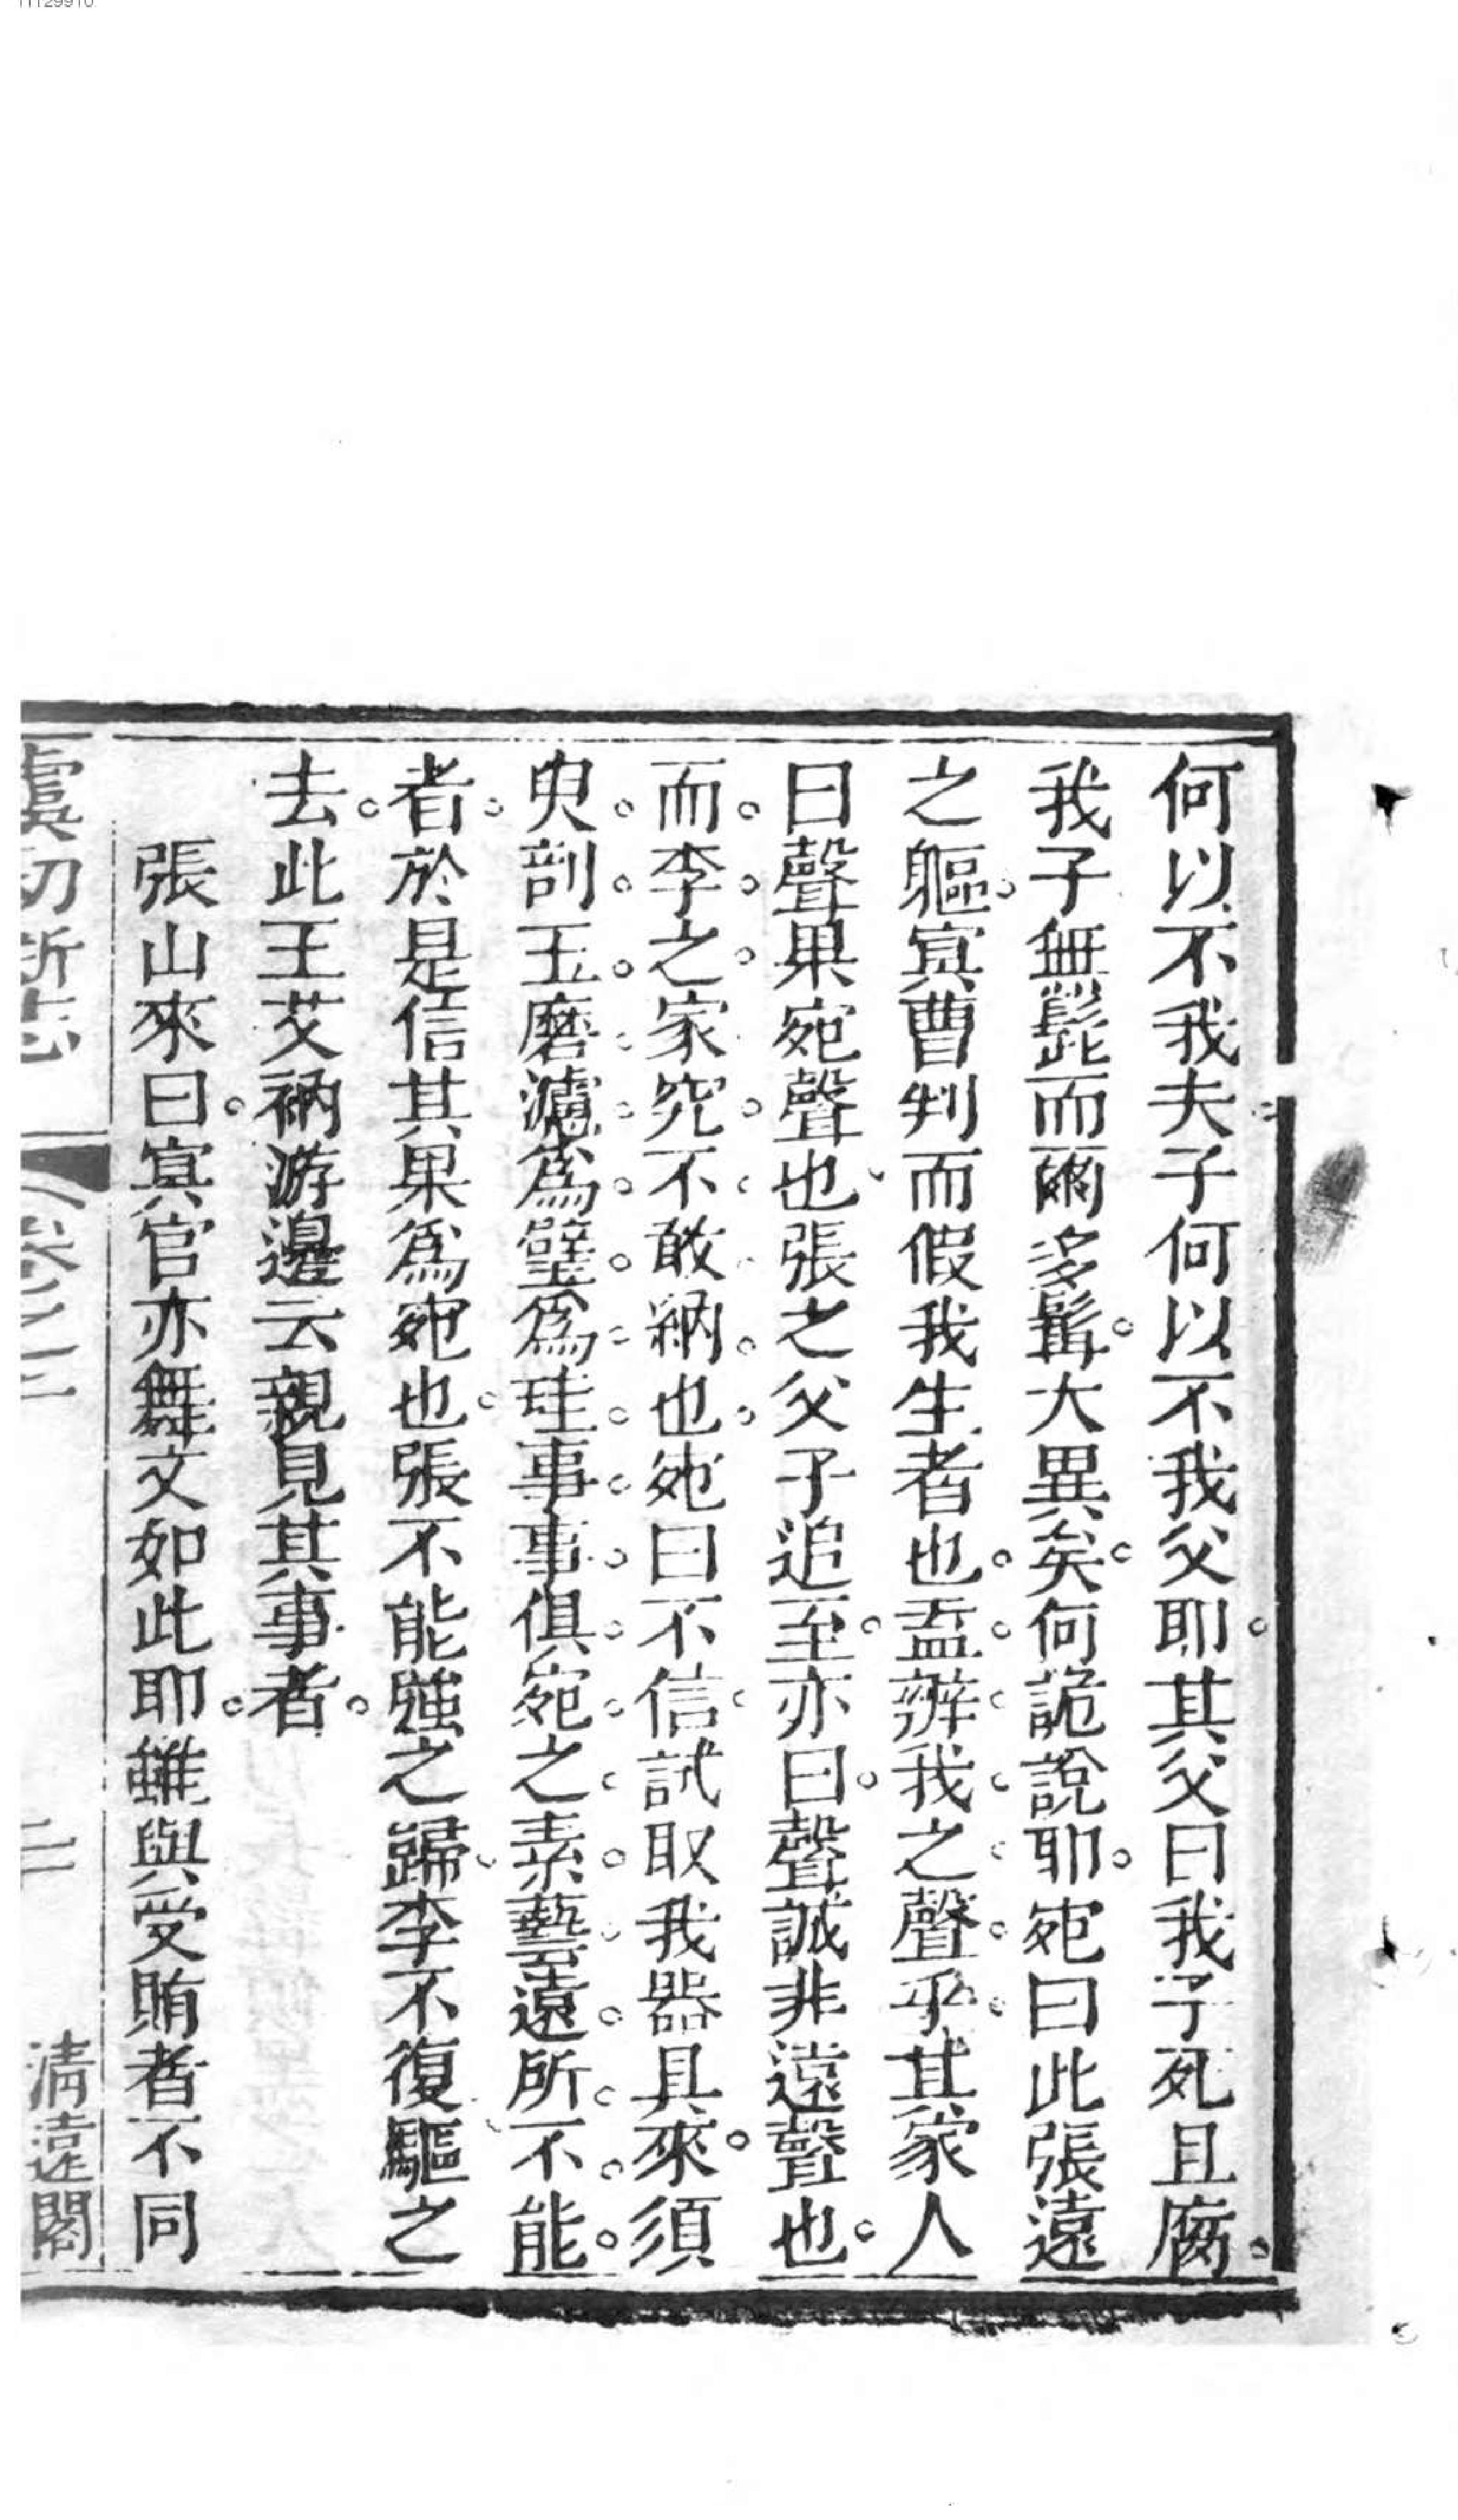 何以不我夫子何以不我父耶其父曰我子死且腐
我子無髭而爾多髯大異矣何詭說耶宛曰此張遠
之軀寘曹判而假我生者也盍辨我之聲乎其家人
曰聲果宛聲也張之父子追至亦曰聲誠非遠聲也
而李之家究不敢納也宛曰不信試取我器具來須
臾剖玉磨濾爲璧爲珪事事俱宛之素藝遠所不能
者於是信其果爲宛也張不能強之歸李不復驅之
去此王艾衲游邊云親見其事者
張山來曰寘官亦舞文如此耶雖與受賄者不同
虞初新志 卷之三 二 清遠閣